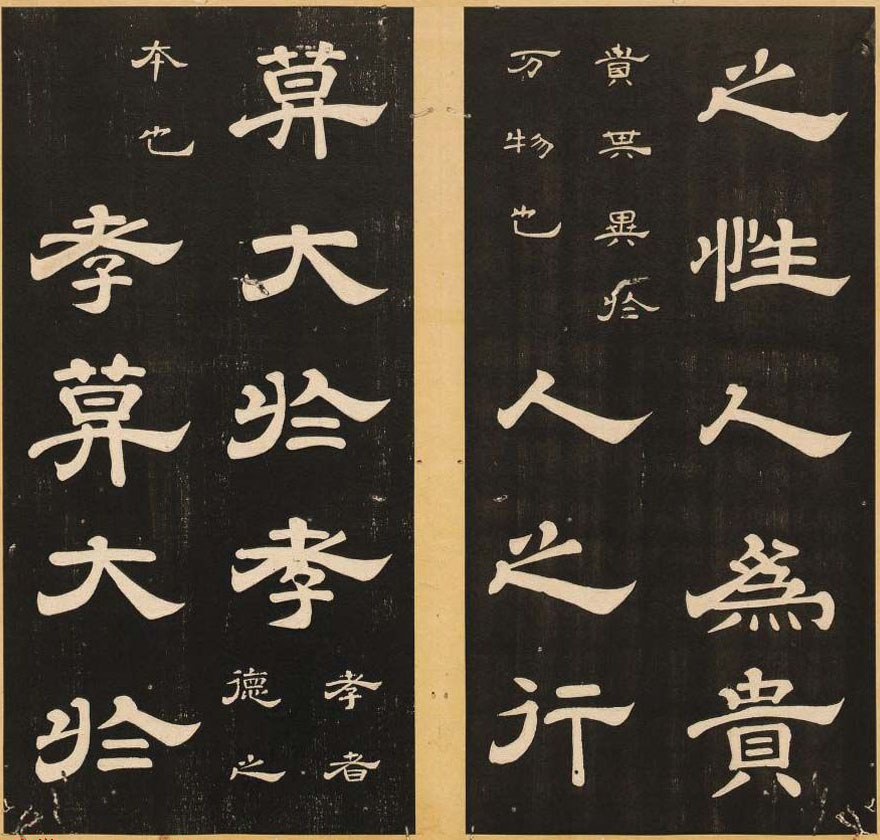 之性人爲貴
貴其異於
万物也
人之行
莫大於孝
孝者
德之
本也
孝莫大於